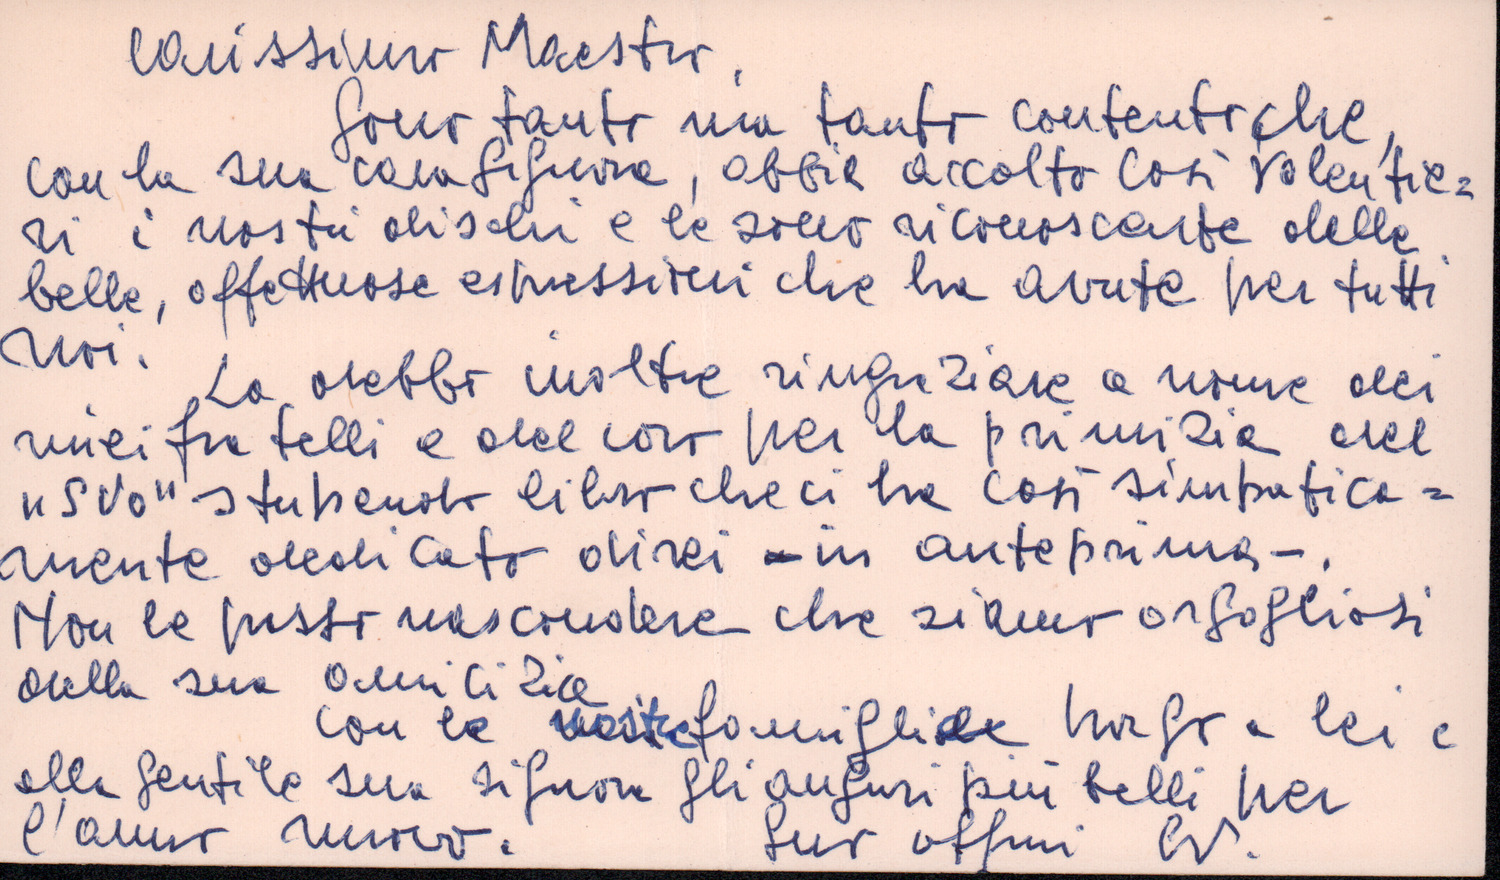 Carissimo Maestro,
Sono tanto ma tanto contento che,
con la sua cara Signora, abbia accolto così volentie=
ri i nostri dischi e le sono riconoscente delle
belle, affettuose espressioni che ha avute per tutti
noi.
La debbo inoltre ringraziare a nome dei
miei fratelli e del coro per la primizia del
"SVO" stupendo libro che ci ha così simpatica=
mente dedicato direi - in anteprima -.
Non le posso nascondere che siamo orgogliosi
della sua amicizia
con le nostre famiglie porgo a lei e
alla gentile sua signora gli auguri più belli per
l'anno nuovo. Suo